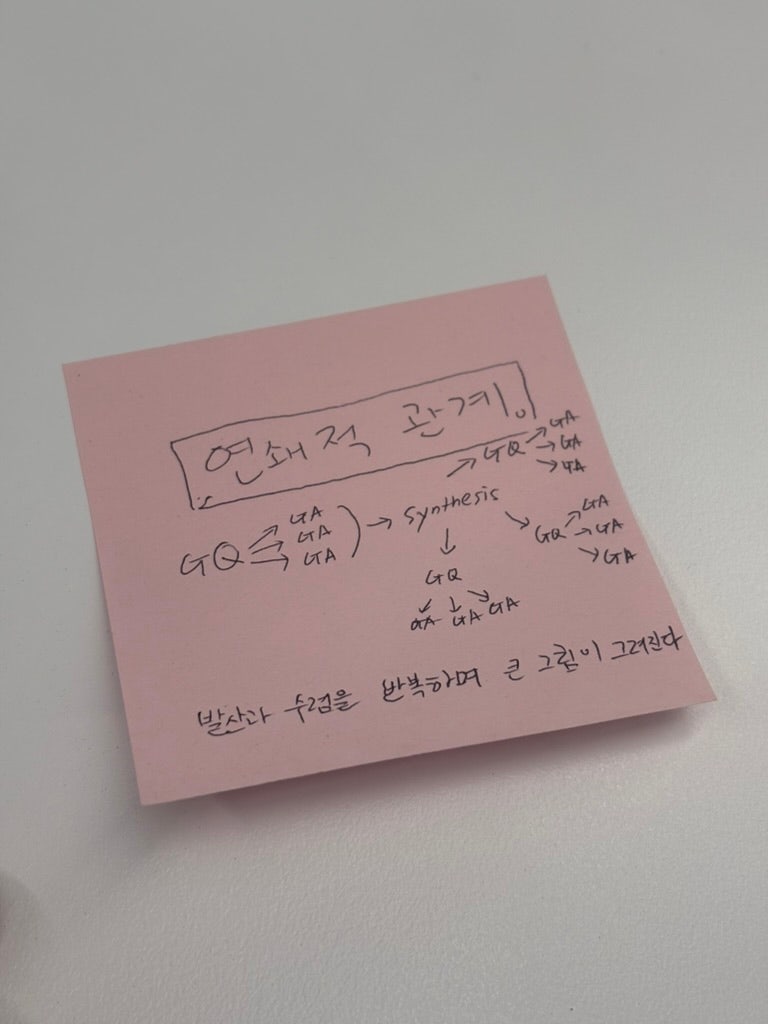 연쇄적 관계.
GQ → GA → GA → GA ) → synthesis
→ GQ → GA → GA → GA
↓ GQ ↙ GA ↓ GA ↘ GA
↘ GQ ↗ GA → GA ↘ GA
발산과 수렴을 반복하며 큰 그림이 그려진다